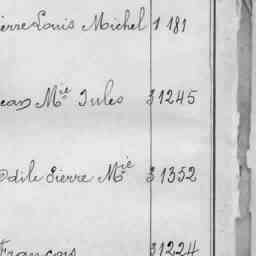 ierre Louis Michel 1 181
ean Mie Jules 31245
Odile Pierre Mie 31352
François 31224